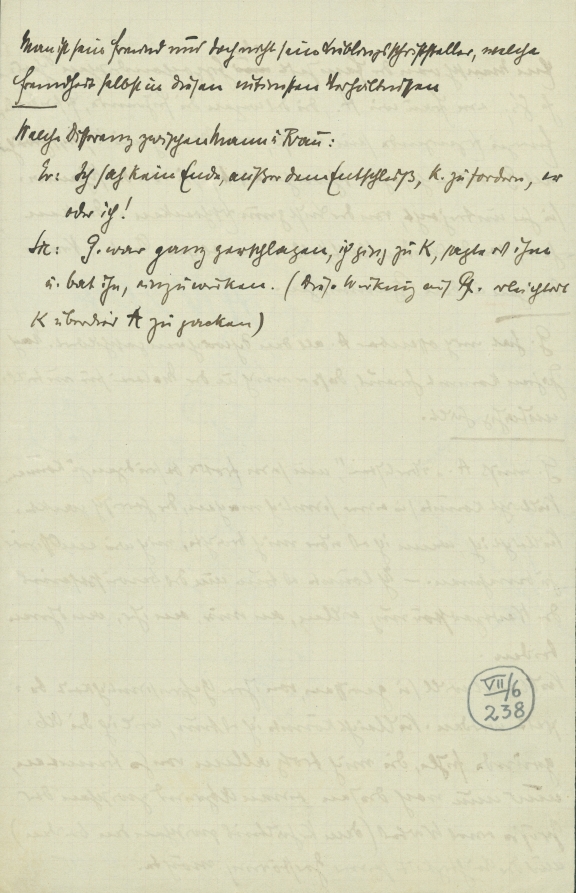 Man ist sein Freund und doch nicht sein Lieblingsschriftsteller, welche
Fremdheit selbst in diesen intimsten Verhältnissen
Welche Differenz zwischen Mann u Frau:
Er: Ich sah kein Ende, außer dem Entschluß, K. zu fordern, er
oder ich!
Sie: G. war ganz zerschlagen, ich ging zu K, sagte es ihm
u. bat ihn, einzuwirken. (Diese Wirkung auf G. erleichtert
K überdies A zu packen)
VII/6
238